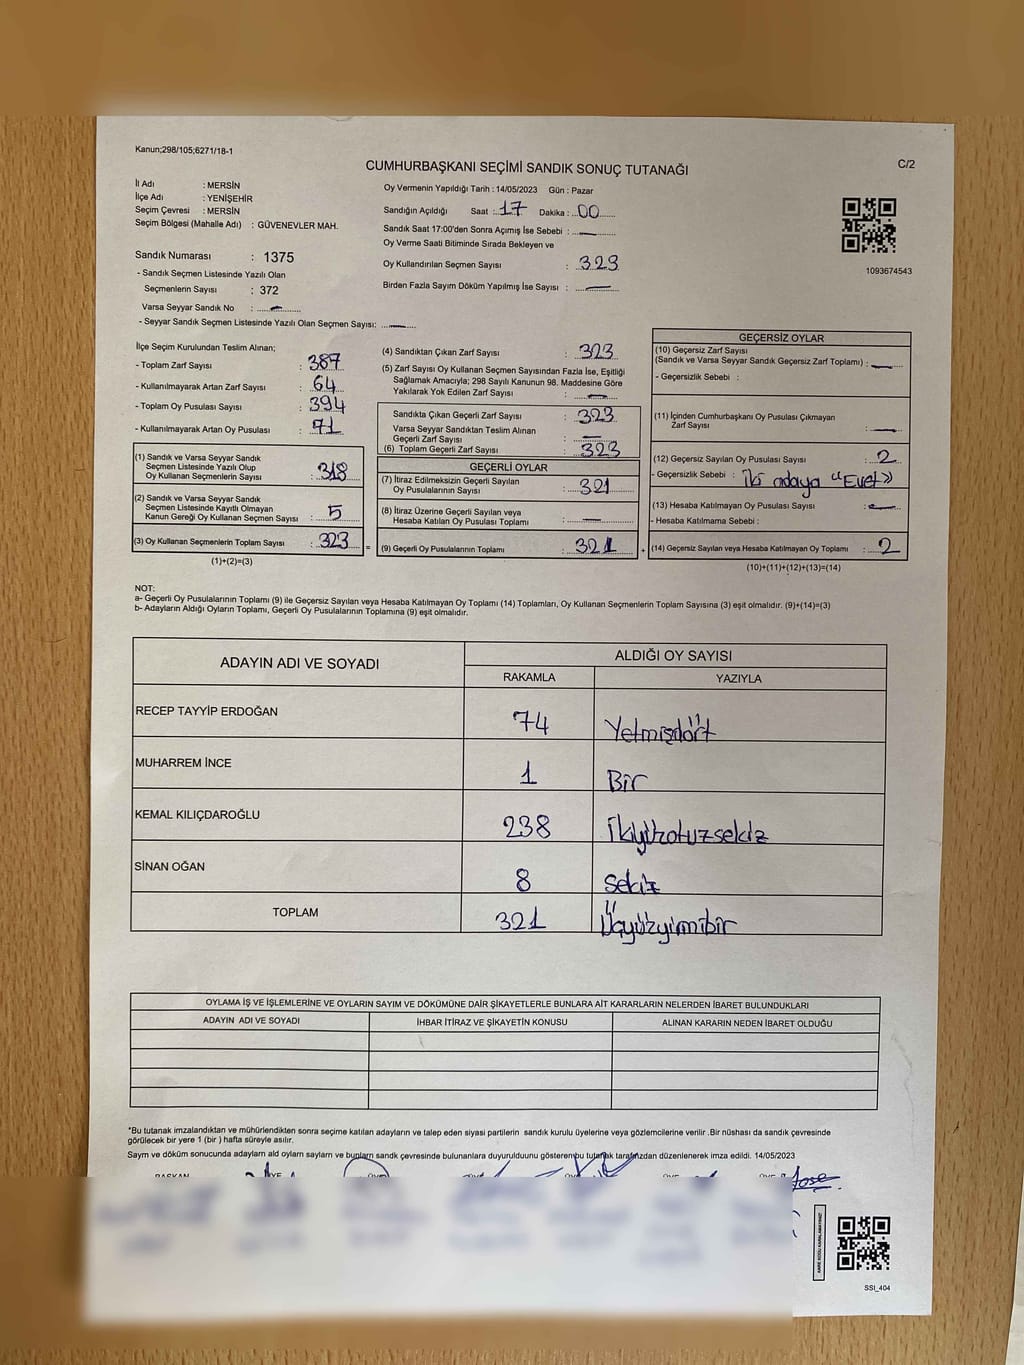 Kanun;298/105;6271/18-1
CUMHURBAŞKANI SEÇİMİ SANDIK SONUÇ TUTANAĞI
C/2
İl Adı : MERSİN
İlçe Adı : YENİŞEHİR
Seçim Çevresi : MERSİN
Seçim Bölgesi (Mahalle Adı) : GÜVENEVLER MAH.
Sandık Numarası : 1375
- Sandık Seçmen Listesinde Yazılı Olan
Seçmenlerin Sayısı : 372
Varsa Seyyar Sandık No : —
- Seyyar Sandık Seçmen Listesinde Yazılı Olan Seçmen Sayısı: —
Oy Vermenin Yapıldığı Tarih : 14/05/2023 Gün : Pazar
Sandığın Açıldığı Saat : 17 Dakika : 00
Sandık Saat 17:00'den Sonra Açımış İse Sebebi : —
Oy Verme Saati Bitiminde Sırada Bekleyen ve
Oy Kullandırılan Seçmen Sayısı : 323
Birden Fazla Sayım Döküm Yapılmış İse Sayısı : —
1093674543
İlçe Seçim Kurulundan Teslim Alınan;
- Toplam Zarf Sayısı : 387
- Kullanılmayarak Artan Zarf Sayısı : 64
- Toplam Oy Pusulası Sayısı : 394
- Kullanılmayarak Artan Oy Pusulası : 71
(1) Sandık ve Varsa Seyyar Sandık
Seçmen Listesinde Yazılı Olup
Oy Kullanan Seçmenlerin Sayısı : 318
(2) Sandık ve Varsa Seyyar Sandık
Seçmen Listesinde Kayıtlı Olmayan
Kanun Gereği Oy Kullanan Seçmen Sayısı : 5
(3) Oy Kullanan Seçmenlerin Toplam Sayısı : 323 =
(1)+(2)=(3)
(4) Sandıktan Çıkan Zarf Sayısı : 323
(5) Zarf Sayısı Oy Kullanan Seçmen Sayısından Fazla İse, Eşitliği
Sağlamak Amacıyla; 298 Sayılı Kanunun 98. Maddesine Göre
Yakılarak Yok Edilen Zarf Sayısı : —
Sandıkta Çıkan Geçerli Zarf Sayısı : 323
Varsa Seyyar Sandıktan Teslim Alınan
Geçerli Zarf Sayısı : —
(6) Toplam Geçerli Zarf Sayısı : 323
GEÇERLİ OYLAR
(7) İtiraz Edilmeksizin Geçerli Sayılan
Oy Pusulalarının Sayısı : 321
(8) İtiraz Üzerine Geçerli Sayılan veya
Hesaba Katılan Oy Pusulası Toplamı : —
(9) Geçerli Oy Pusulalarının Toplamı : 321 +
GEÇERSİZ OYLAR
(10) Geçersiz Zarf Sayısı
(Sandık ve Varsa Seyyar Sandık Geçersiz Zarf Toplamı) : —
- Geçersizlik Sebebi :
(11) İçinden Cumhurbaşkanı Oy Pusulası Çıkmayan
Zarf Sayısı : —
(12) Geçersiz Sayılan Oy Pusulası Sayısı : 2
- Geçersizlik Sebebi : İki adaya "Evet"
(13) Hesaba Katılmayan Oy Pusulası Sayısı : —
- Hesaba Katılmama Sebebi :
(14) Geçersiz Sayılan veya Hesaba Katılmayan Oy Toplamı : 2
(10)+(11)+(12)+(13)=(14)
NOT:
a- Geçerli Oy Pusulalarının Toplamı (9) ile Geçersiz Sayılan veya Hesaba Katılmayan Oy Toplamı (14) Toplamları, Oy Kullanan Seçmenlerin Toplam Sayısına (3) eşit olmalıdır. (9)+(14)=(3)
b- Adayların Aldığı Oyların Toplamı, Geçerli Oy Pusulalarının Toplamına (9) eşit olmalıdır.
ADAYIN ADI VE SOYADI ALDIĞI OY SAYISI
RAKAMLA YAZIYLA
RECEP TAYYİP ERDOĞAN 74 Yetmişdört
MUHARREM İNCE 1 Bir
KEMAL KILIÇDAROĞLU 238 İkiyüzotuzsekiz
SİNAN OĞAN 8 Sekiz
TOPLAM 321 Üçyüzyirmibir
OYLAMA İŞ VE İŞLEMLERİNE VE OYLARIN SAYIM VE DÖKÜMÜNE DAİR ŞİKAYETLERLE BUNLARA AİT KARARLARIN NELERDEN İBARET BULUNDUKLARI
ADAYIN ADI VE SOYADI İHBAR İTİRAZ VE ŞİKAYETİN KONUSU ALINAN KARARIN NEDEN İBARET OLDUĞU
*Bu tutanak imzalandıktan ve mühürlendikten sonra seçime katılan adayların ve talep eden siyasi partilerin sandık kurulu üyelerine veya gözlemcilerine verilir .Bir nüshası da sandık çevresinde
görülecek bir yere 1 (bir ) hafta süreyle asılır.
Sayım ve döküm sonucunda adayların ald oyların sayıları ve bunların sandk çevresinde bulunanlara duyurulduunu gösteren bu tutanak tarafmızdan düzenlenerek imza edildi. 14/05/2023
BAŞKAN
SSI_404